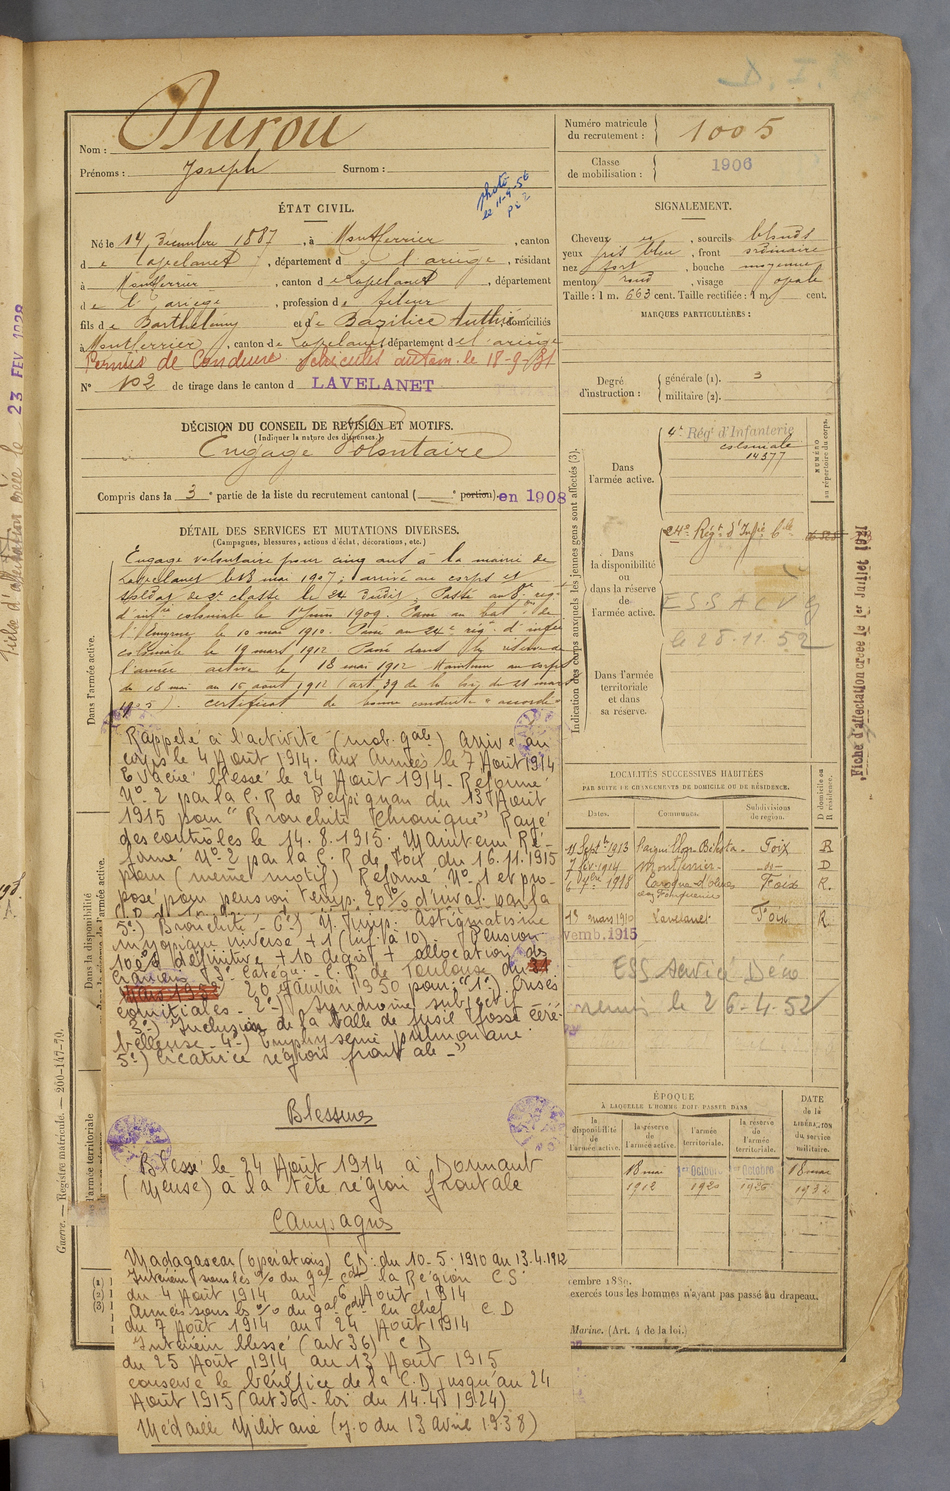 D. I.
Nom : Durou
Prénoms : Joseph Surnom :
Numéro matricule du recrutement : 1005
Classe de mobilisation : 1906
photo le 11-4-56
ÉTAT CIVIL.
Né le 14 Décembre 1887, à Montferrier, canton
de Lavelanet, département de l'ariège, résidant
à Montferrier, canton de Lavelanet, département
de l'ariège, profession de fileur
fils de Barthélemy et de Bazilice Authié domiciliés
à Montferrier, canton de Lavelanet département de l'ariège
Permis de Conduire véhicules autom. le 18-9-31
N° 102 de tirage dans le canton d LAVELANET
SIGNALEMENT.
Cheveux , sourcils blonds
yeux gris bleu, front ordinaire
nez fort, bouche moyenne
menton rond, visage ovale
Taille : 1 m. 663 cent. Taille rectifiée : 1 m. cent.
MARQUES PARTICULIÈRES :
Degré d'instruction : générale (1). 3
militaire (2).
DÉCISION DU CONSEIL DE REVISION ET MOTIFS.
(Indiquer la nature des dispenses.)
Engagé Volontaire
Compris dans la 3e partie de la liste du recrutement cantonal ( e portion). en 1908
DÉTAIL DES SERVICES ET MUTATIONS DIVERSES.
(Campagnes, blessures, actions d'éclat, décorations, etc.)
Engagé volontaire pour cinq ans à la mairie de
Lavelanet le 18 mai 1907 ; arrivé au corps et
soldat de 2e classe le 24 dudit. Passé au 8e rég.t
d'inf.ie coloniale le 1er Juin 1909. Passé au bat.on de
l'Emyrne le 10 mai 1910. Passé au 24e rég. d'infie
coloniale le 19 mars 1912. Passé dans la réserve de
l'armée active le 18 mai 1912 Maintenu au corps
du 18 mai au 15 aout 1912 (art. 39 de la loi du 21 mars
1905). Certificat de bonne conduite "accordé"
Rappelé à l'activité (mob. gale) Arrivé au
corps le 4 Août 1914. Aux Armées le 7 Août 1914
Evacué blessé le 24 Août 1914. Réformé
N° 2 par la C. R de Perpignan du 13 Août
1915 pour "Bronchite Chronique" Rayé
des contrôles le 14.8.1915. Maintenu Ré-
formé N° 2 par la C. R de Foix du 16.11.1915
pour (même motif) Réformé N° 1 et pro-
posé pour pension temp. 20% d'inval. par la
5°) Bronchite - 6°) Astigmatisme
myopique inverse + 1 Pension
100% définitive + 10 degrés + allocation des
C. R de Toulouse du 31
Mars 1952 20 Janvier 1950 pour "1°) Crises
comitiales - 2°) Syndrome subjectif
3°) Inclusion de la taille de fosse céré-
belleuse - 4°) Emphysème pulmonaire
5°) Cicatrice région frontale - "
Blessures
Blessé le 24 Août 1914 à Dornaut
(Meuse) à la tête région frontale
Campagnes
Madagascar (opérations) CD : du 10-5-1910 au 13.4.1912
Intérieur sous les o/o du gal cdt la Région CS
du 4 Août 1914 au 6 Août 1914
Armées sous les o/o du gal cdt en chef CD
du 7 Août 1914 au 24 Août 1914
Intérieur blessé (art 36) CD
du 25 Août 1914 au 13 Août 1915
conserve le bénéfice de la C.D jusqu'au 24
Août 1915 (art 36 - loi du 14.4.1924)
Médaille Militaire (J.O du 13 avril 1938)
Indication des corps auxquels les jeunes gens sont affectés (3).
NUMÉRO au répertoire du corps.
Dans l'armée active.
4e Régt d'Infanterie
coloniale
14377
Dans la disponibilité ou dans la réserve de l'armée active.
24e Régt d'Infie Cale
ESSACVG
le 28.11.52
Dans l'armée territoriale et dans sa réserve.
Fiche d'affectation créée le 1er Juillet 1921
LOCALITÉS SUCCESSIVES HABITÉES
PAR SUITE DE CHANGEMENTS DE DOMICILE OU DE RÉSIDENCE.
Dates. Communes. Subdivisions de région. D domicile ou R résidence.
11 Septbre 1913 Foix R
7 fév. 1914 Montferrier -"- D
1918 Foix R.
1er mars 1910 Lavelanet Foix R.
vemb. 1915
ESS service Déco
remis le 26-4-52
ÉPOQUE
À LAQUELLE L'HOMME DOIT PASSER DANS
DATE de la LIBÉRATION du service militaire.
la disponibilité de l'armée active.
la réserve de l'armée active.
l'armée territoriale.
la réserve de l'armée territoriale.
18 mai 1912
1er Octobre 1920
1er Octobre 1926
18 mai 1932
cembre 1889.
exercés tous les hommes n'ayant pas passé au drapeau.
Marine. (Art. 4 de la loi.)
Dans l'armée active.
Dans la disponibilité
de l'armée active.
l'armée territoriale
Guerre. — Registre matricule. — 200-147-70.
(1) (2) (3)
d'affectation créée le 23 FEV 1928